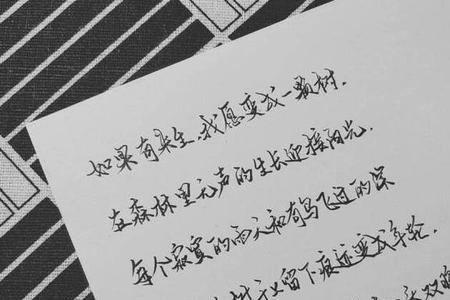 如果有来生,我愿变成一颗树.
在森林里无声的生长迎接阳光.
每个寂寞的雨天和有鸟飞过的深
留下痕迹变成年轮.